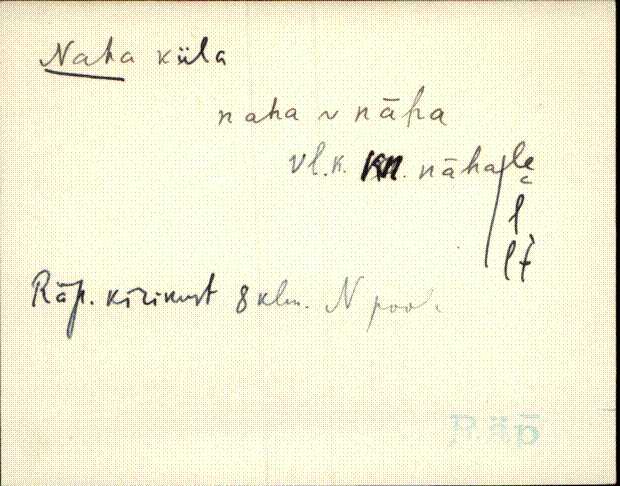 Naha küla
naha ~ nāha
vl. k. kn. nāhale
l
lt
Räp. kirikust 8 klm. N pool.
Räp